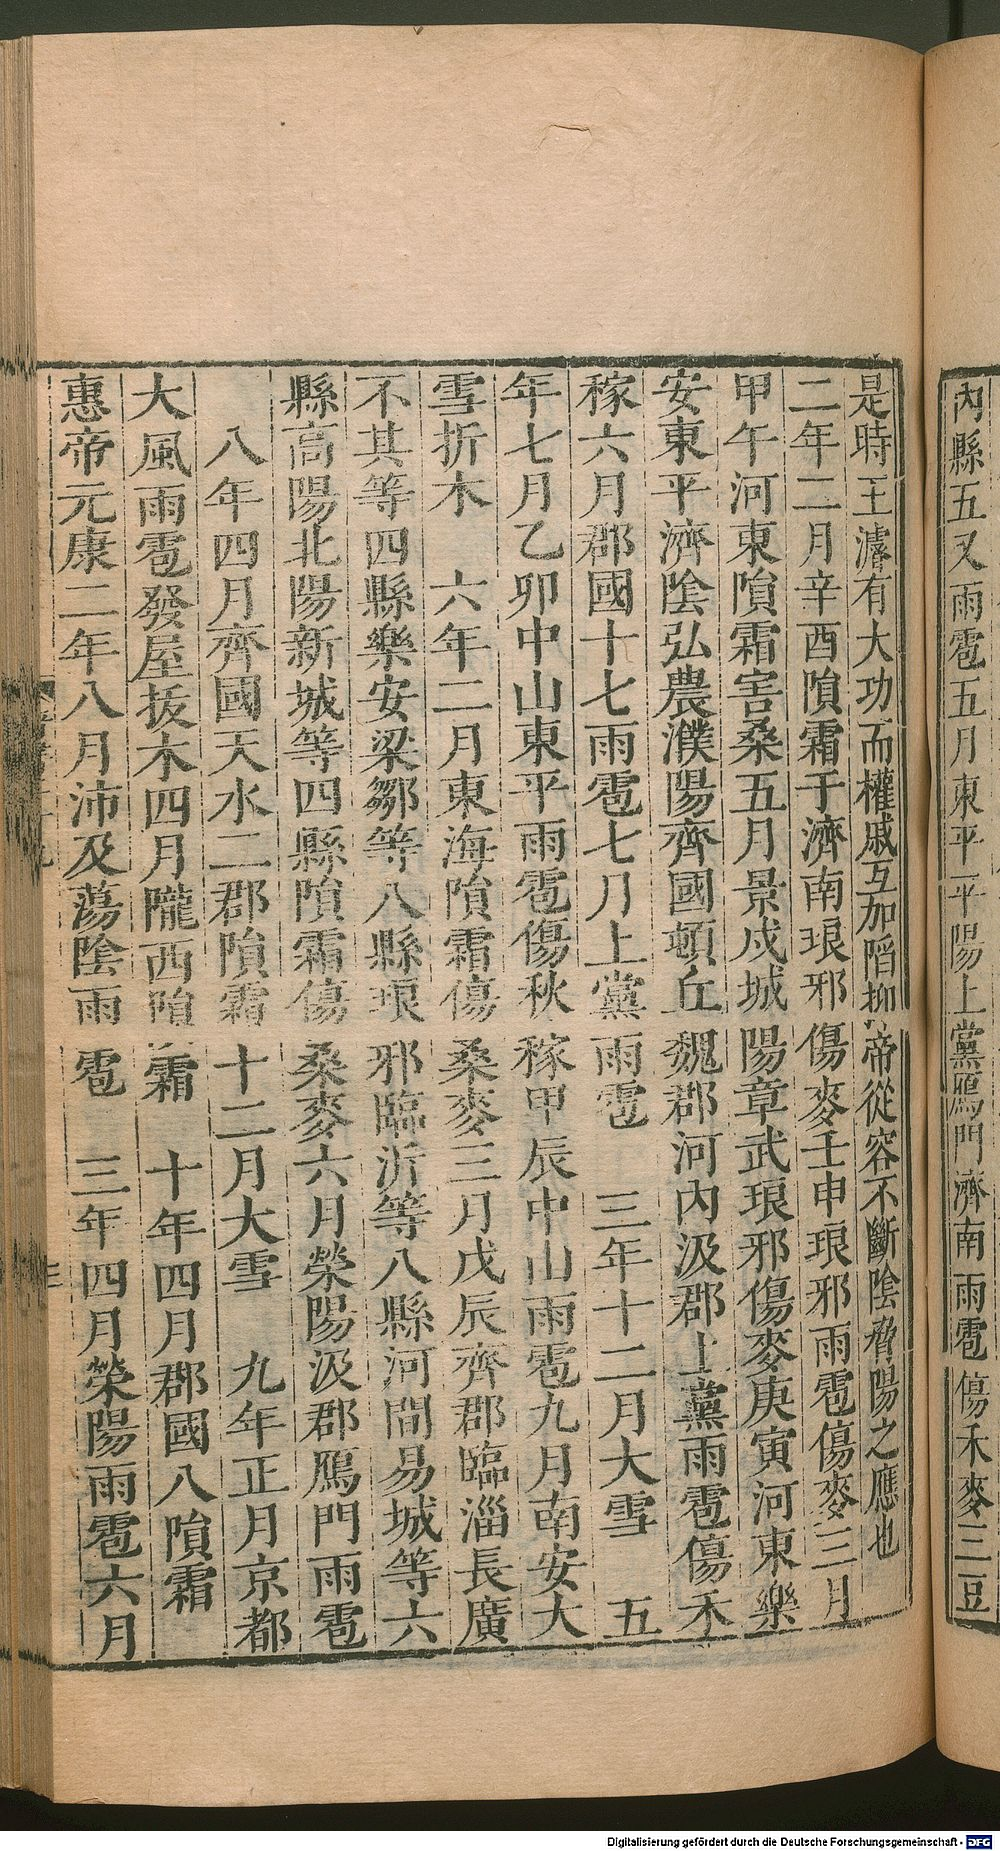 內縣五又雨雹五月東平平陽上黨鴈門濟南雨雹傷禾麥三豆
是時王濬有大功而權戚互加陷抑帝從容不斷陰脅陽之應也
二年二月辛酉隕霜于濟南琅邪傷麥壬申琅邪雨雹傷麥三月
甲午河東隕霜害桑五月景戌城陽章武琅邪傷麥庚寅河東樂
安東平濟陰弘農濮陽齊國頓丘魏郡河內汲郡上黨雨雹傷禾
稼六月郡國十七雨雹七月上黨雨雹 三年十二月大雪 五
年七月乙卯中山東平雨雹傷秋稼甲辰中山雨雹九月南安大
雪折木 六年二月東海隕霜傷桑麥三月戊辰齊郡臨淄長廣
不其等四縣樂安梁鄒等八縣琅邪臨沂等八縣河間易城等六
縣高陽北陽新城等四縣隕霜傷桑麥六月滎陽汲郡鴈門雨雹
八年四月齊國天水二郡隕霜十二月大雪 九年正月京都
大風雨雹發屋拔木四月隴西隕霜 十年四月郡國八隕霜
惠帝元康二年八月沛及蕩陰雨雹 三年四月滎陽雨雹六月
Digitalisierung gefördert durch die Deutsche Forschungsgemeinschaft - DFG